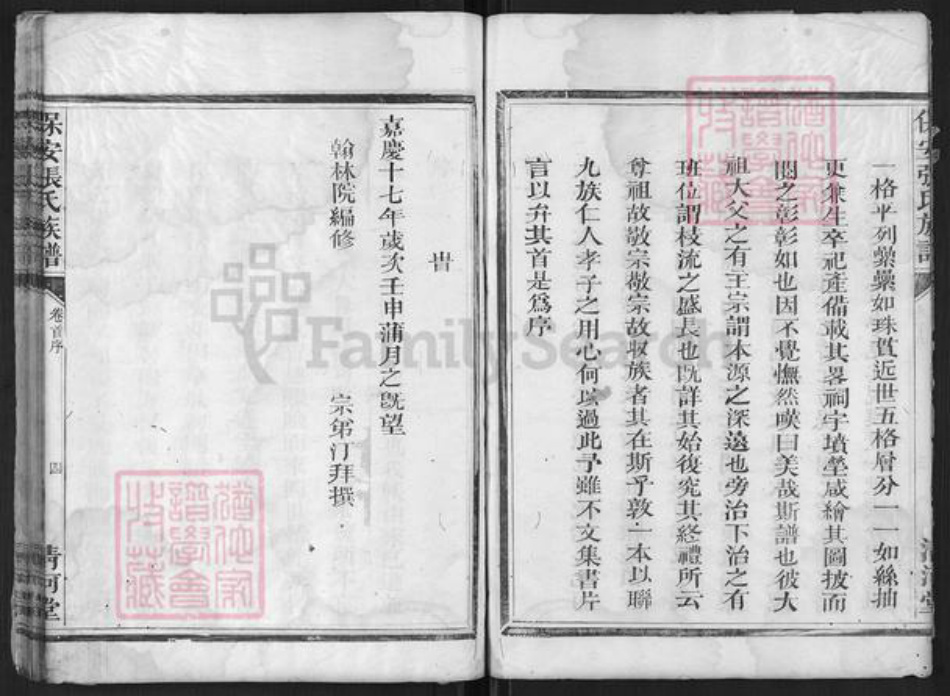 保安張氏族譜
清河堂
一格平列纍纍如珠貫近世五格層分一一如絲抽
更雜生卒祀產備載其畧祠宇墳塋咸繪其圖披而
閱之彰彰如也因不覺憮然嘆曰美哉斯譜也彼大
祖大父之有主宗謂本源之深遠也旁治下治之有
班位謂枝流之盛長也既詳其始復究其終禮所云
尊祖故敬宗敬宗故収族者其在斯乎敦一本以聯
九族仁人孝子之用心何以過此予雖不文集書片
言以弁其首是爲序
旹
嘉慶十七年歲次壬申蒲月之既望
翰林院編修 宗弟汀拜撰
保安張氏族譜
卷首序
四
清河堂
譜學會
FamilySearch
譜學會